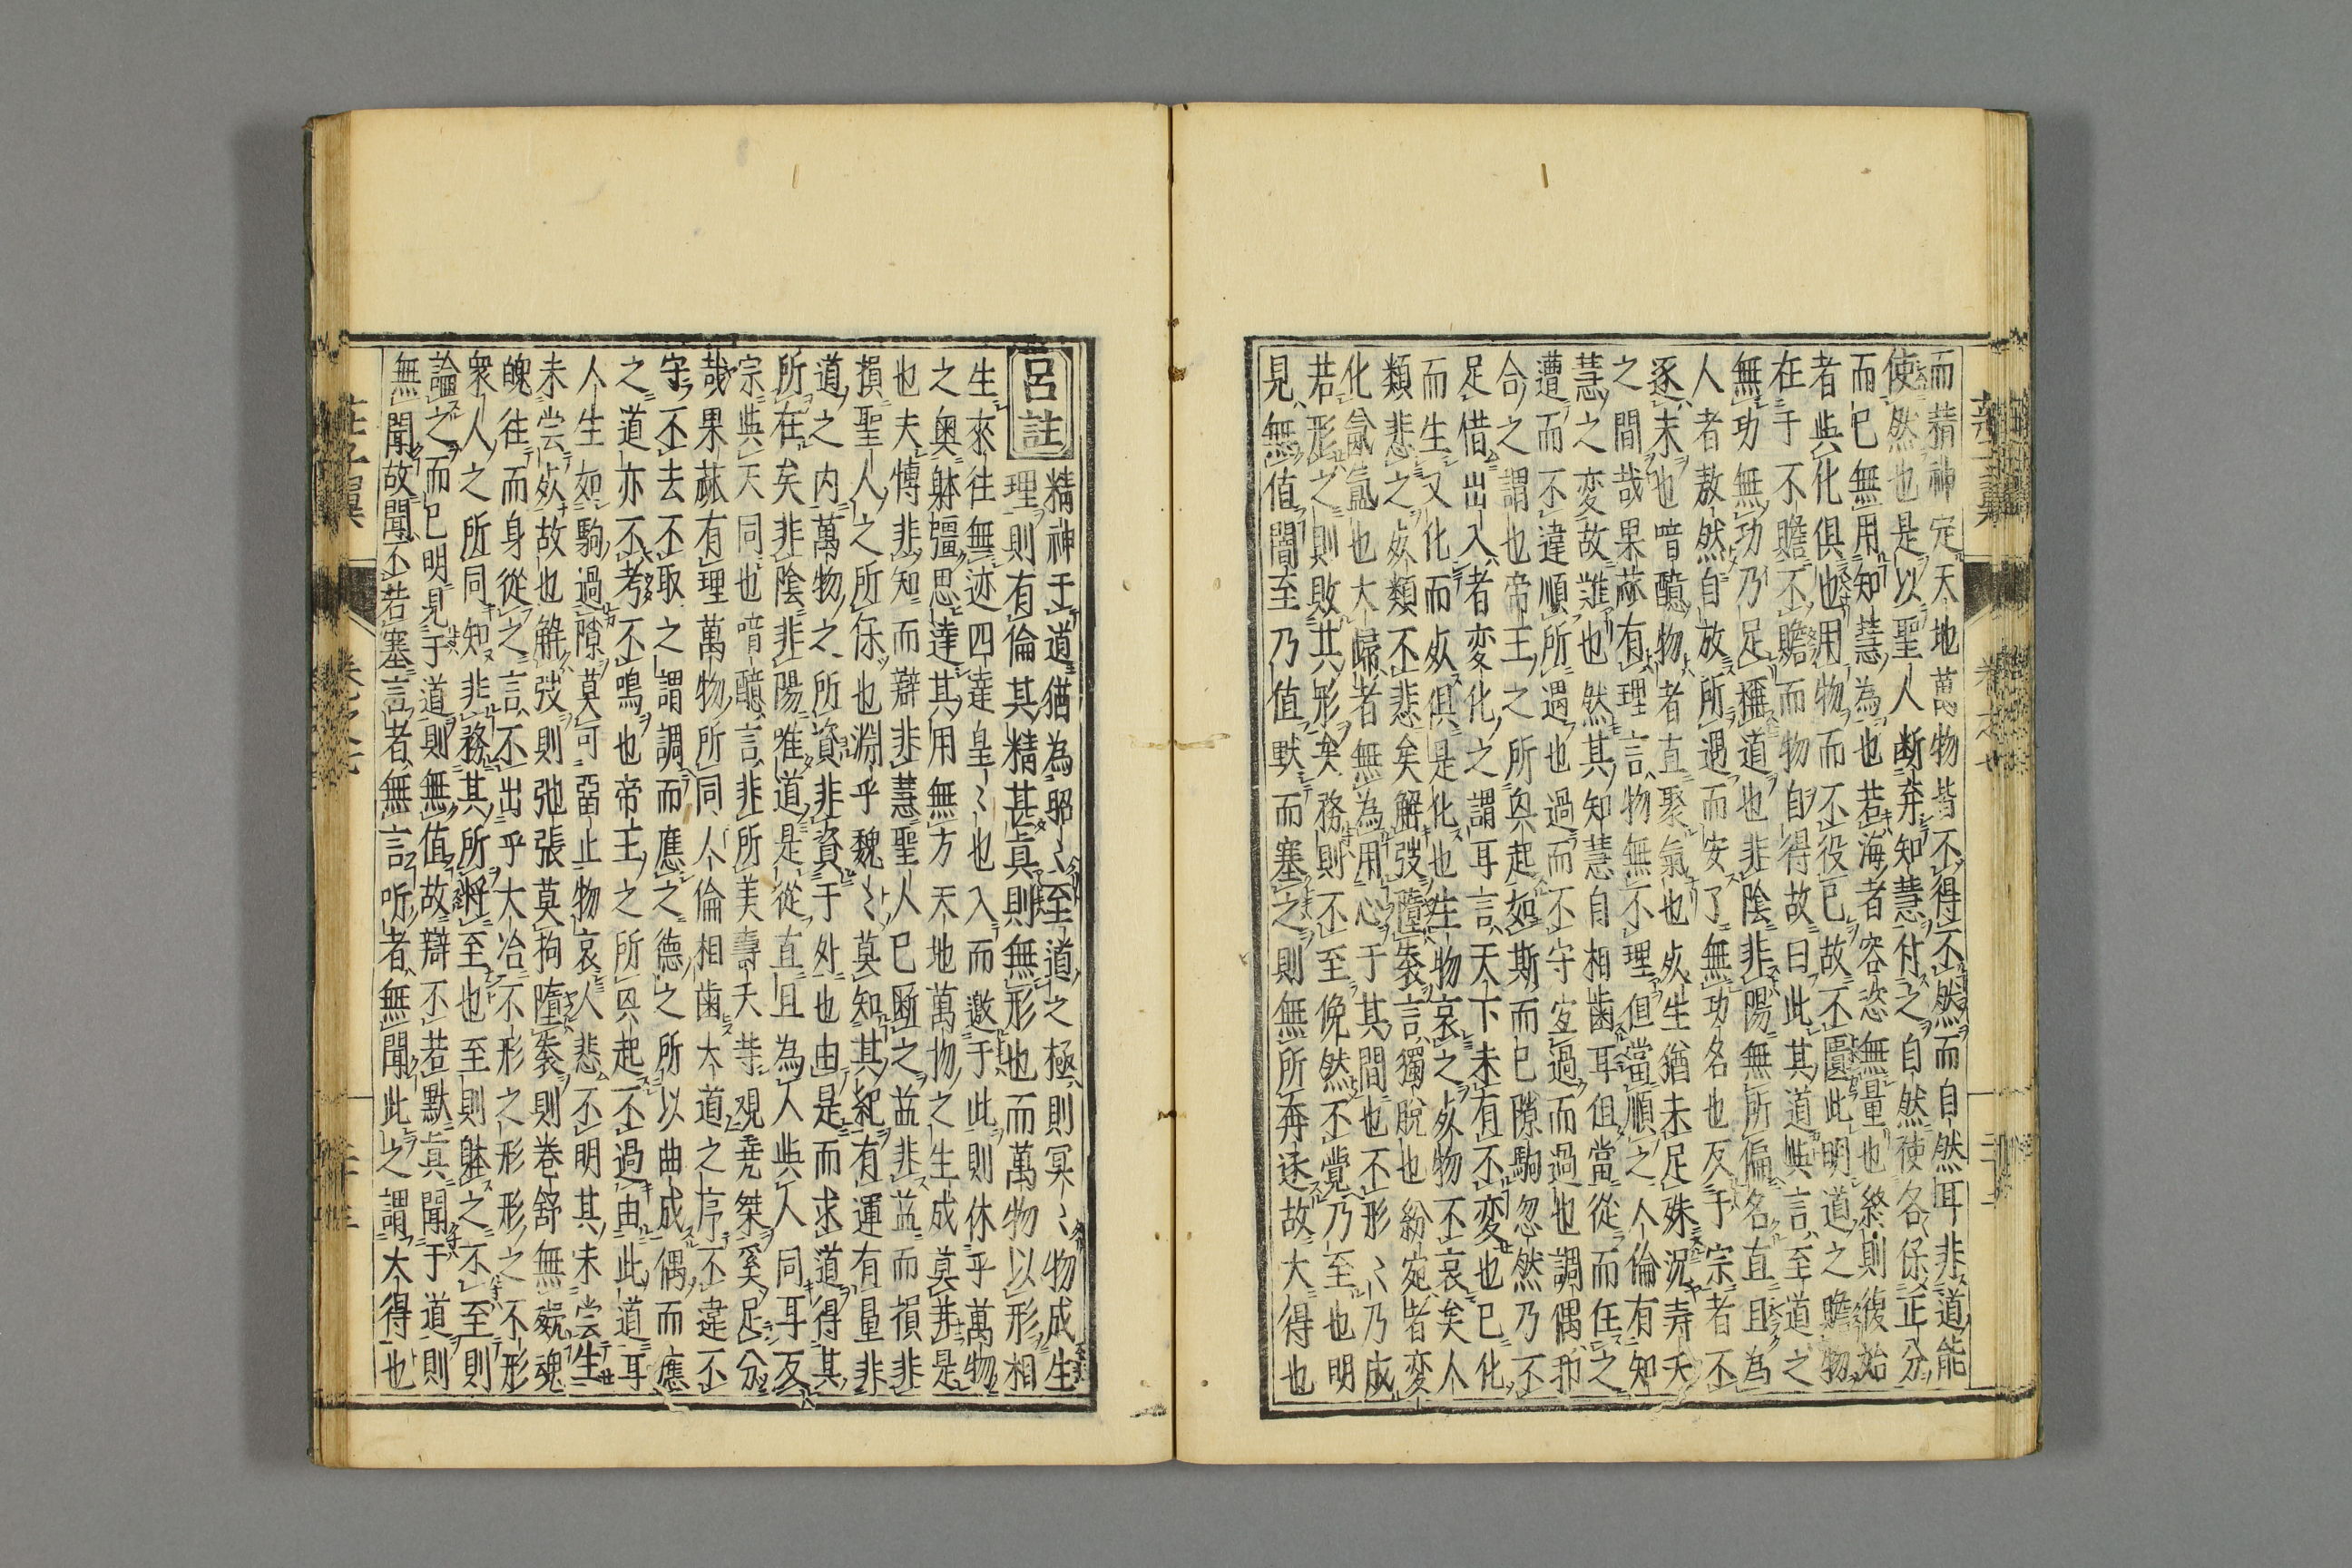 而精神定天地萬物皆不得不然而自然耳非道能
使然也是以聖人断弃知慧付之自然使各保正分
而已無用知慧為也若海者容恣無量也終則復始
者與化俱也用物而不役已故不匱此明道之贍物
在于不贍不贍而物自得故曰此其道與言至道之
無功無功乃足稱道也非陰非陽無所偏名直且為
人者敖然自放所遇而安了無功名也反于宗者不
逐末也喑醷物者直聚氣也死生猶未足殊況寿夭
之間哉果蓏有理言物無不理但當順之人倫有知
慧之変故難也然其知慧自相齒耳但當從而任之
遭而不違順所遇也過而不守宜過而過也調偶和
合之謂也帝王之所興起如斯而已隙駒忽然乃不
足借出入者変化之謂耳言天下未有不変也已化
而生又化而死俱是化也生物哀之死物不哀矣人
類悲之死類不悲矣解弢隳袠言獨脱也紛宛者変
化氤氳也大歸者無為用心于其間也不形〻乃成
若形之則敗其形矣務則不至俛然不覺乃至也明
見無值闇至乃值默而塞之則無所奔逐故大得也
呂註
精神于道猶為昭〻至道之極則冥〻物成生
理則有倫其精甚真則無形也而萬物以形相
生來往無迹四達皇〻也入而邀于此則休乎萬物
之奥躰彊思達其用無方天地萬物之生成莫非是
也夫博非知而辯非慧聖人已斷之益非益而損非
損聖人之所保也淵乎魏〻莫知其紀有運有量非
道之内萬物之所資非資于外也由是而求道得其
所在矣非陰非陽唯道是從直且為人與人同耳反
宗與天同也喑醷言非所美壽夭甚堯桀奚足分
哉果蓏有理萬物所同人倫相齒大道之序不違不
守不去不取之謂調而應之德之所以曲成偶而應
之道亦不考不鳴也帝王之所興起不過由此道耳
人生如駒過隙莫可留止物哀人悲不明其未尝生
未尝死故也解弢則弛張莫拘隳袠則卷舒無礙魂
魄往而身從之言不出乎大冶不形之形形之不形
衆人之所同知非務其所將至也至則躰之不至則
論之而已明見于道則無值故辯不若默真聞于道則
無聞故聞不若塞言者無言听者無聞此之謂大得也
莊子翼